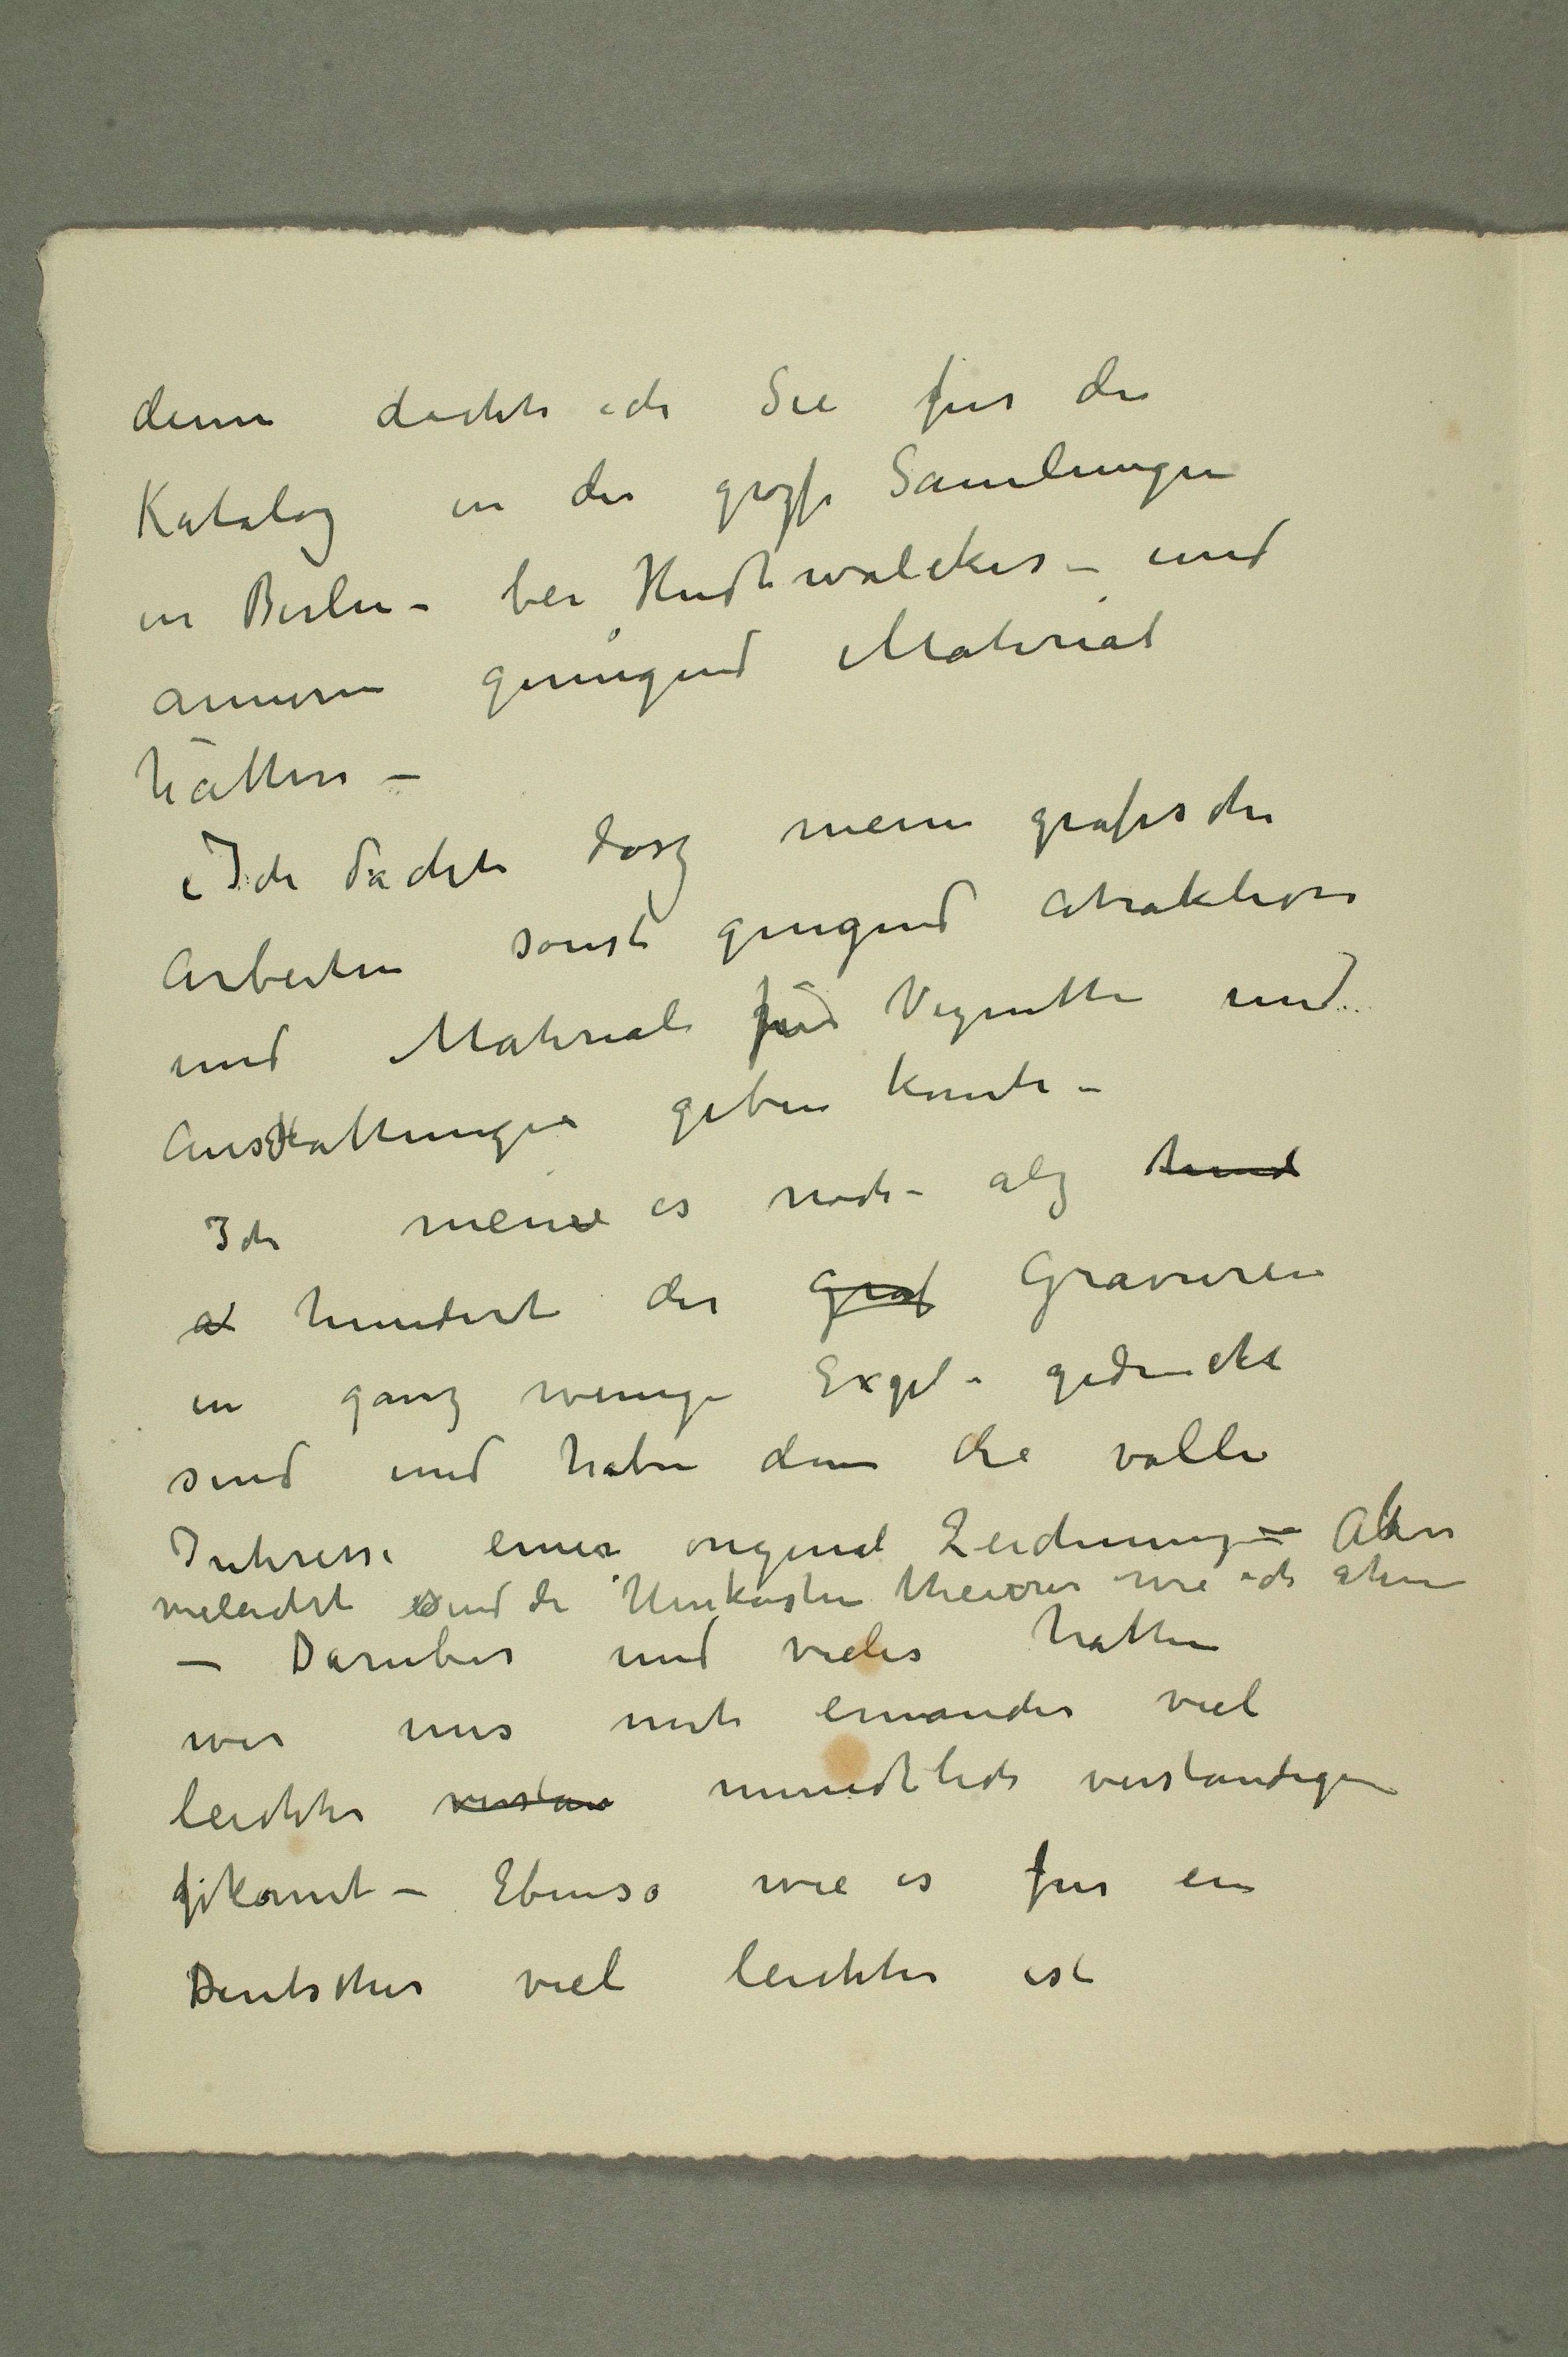 denn dachte ich Sie fur die
Katalog in die grosse Samlungen
in Berlin – bei Hudtwalcker – und
anneren genügend Material
hätten –
Ich dachte dasz meine grafische
Arbeiten sonst genugend atraktion
und Material für Vignette und
Ausstattungen geben konnte –
Ich meine es noch – alz hund
at hundert der Graf Gravuren
in ganz wenige Expl. gedruckt
sind und haben denn die volle
Interesse einer original Zeichnung – Aber
vieleicht sind die Unkosten theurer wie ich ahne
– Daruber und vieles hatten
wir uns mit einander viel
leichter verstan mundtlich verstandigen
gekonnt – Ebenso wie es fur ein
Deutscher viel leichter ist